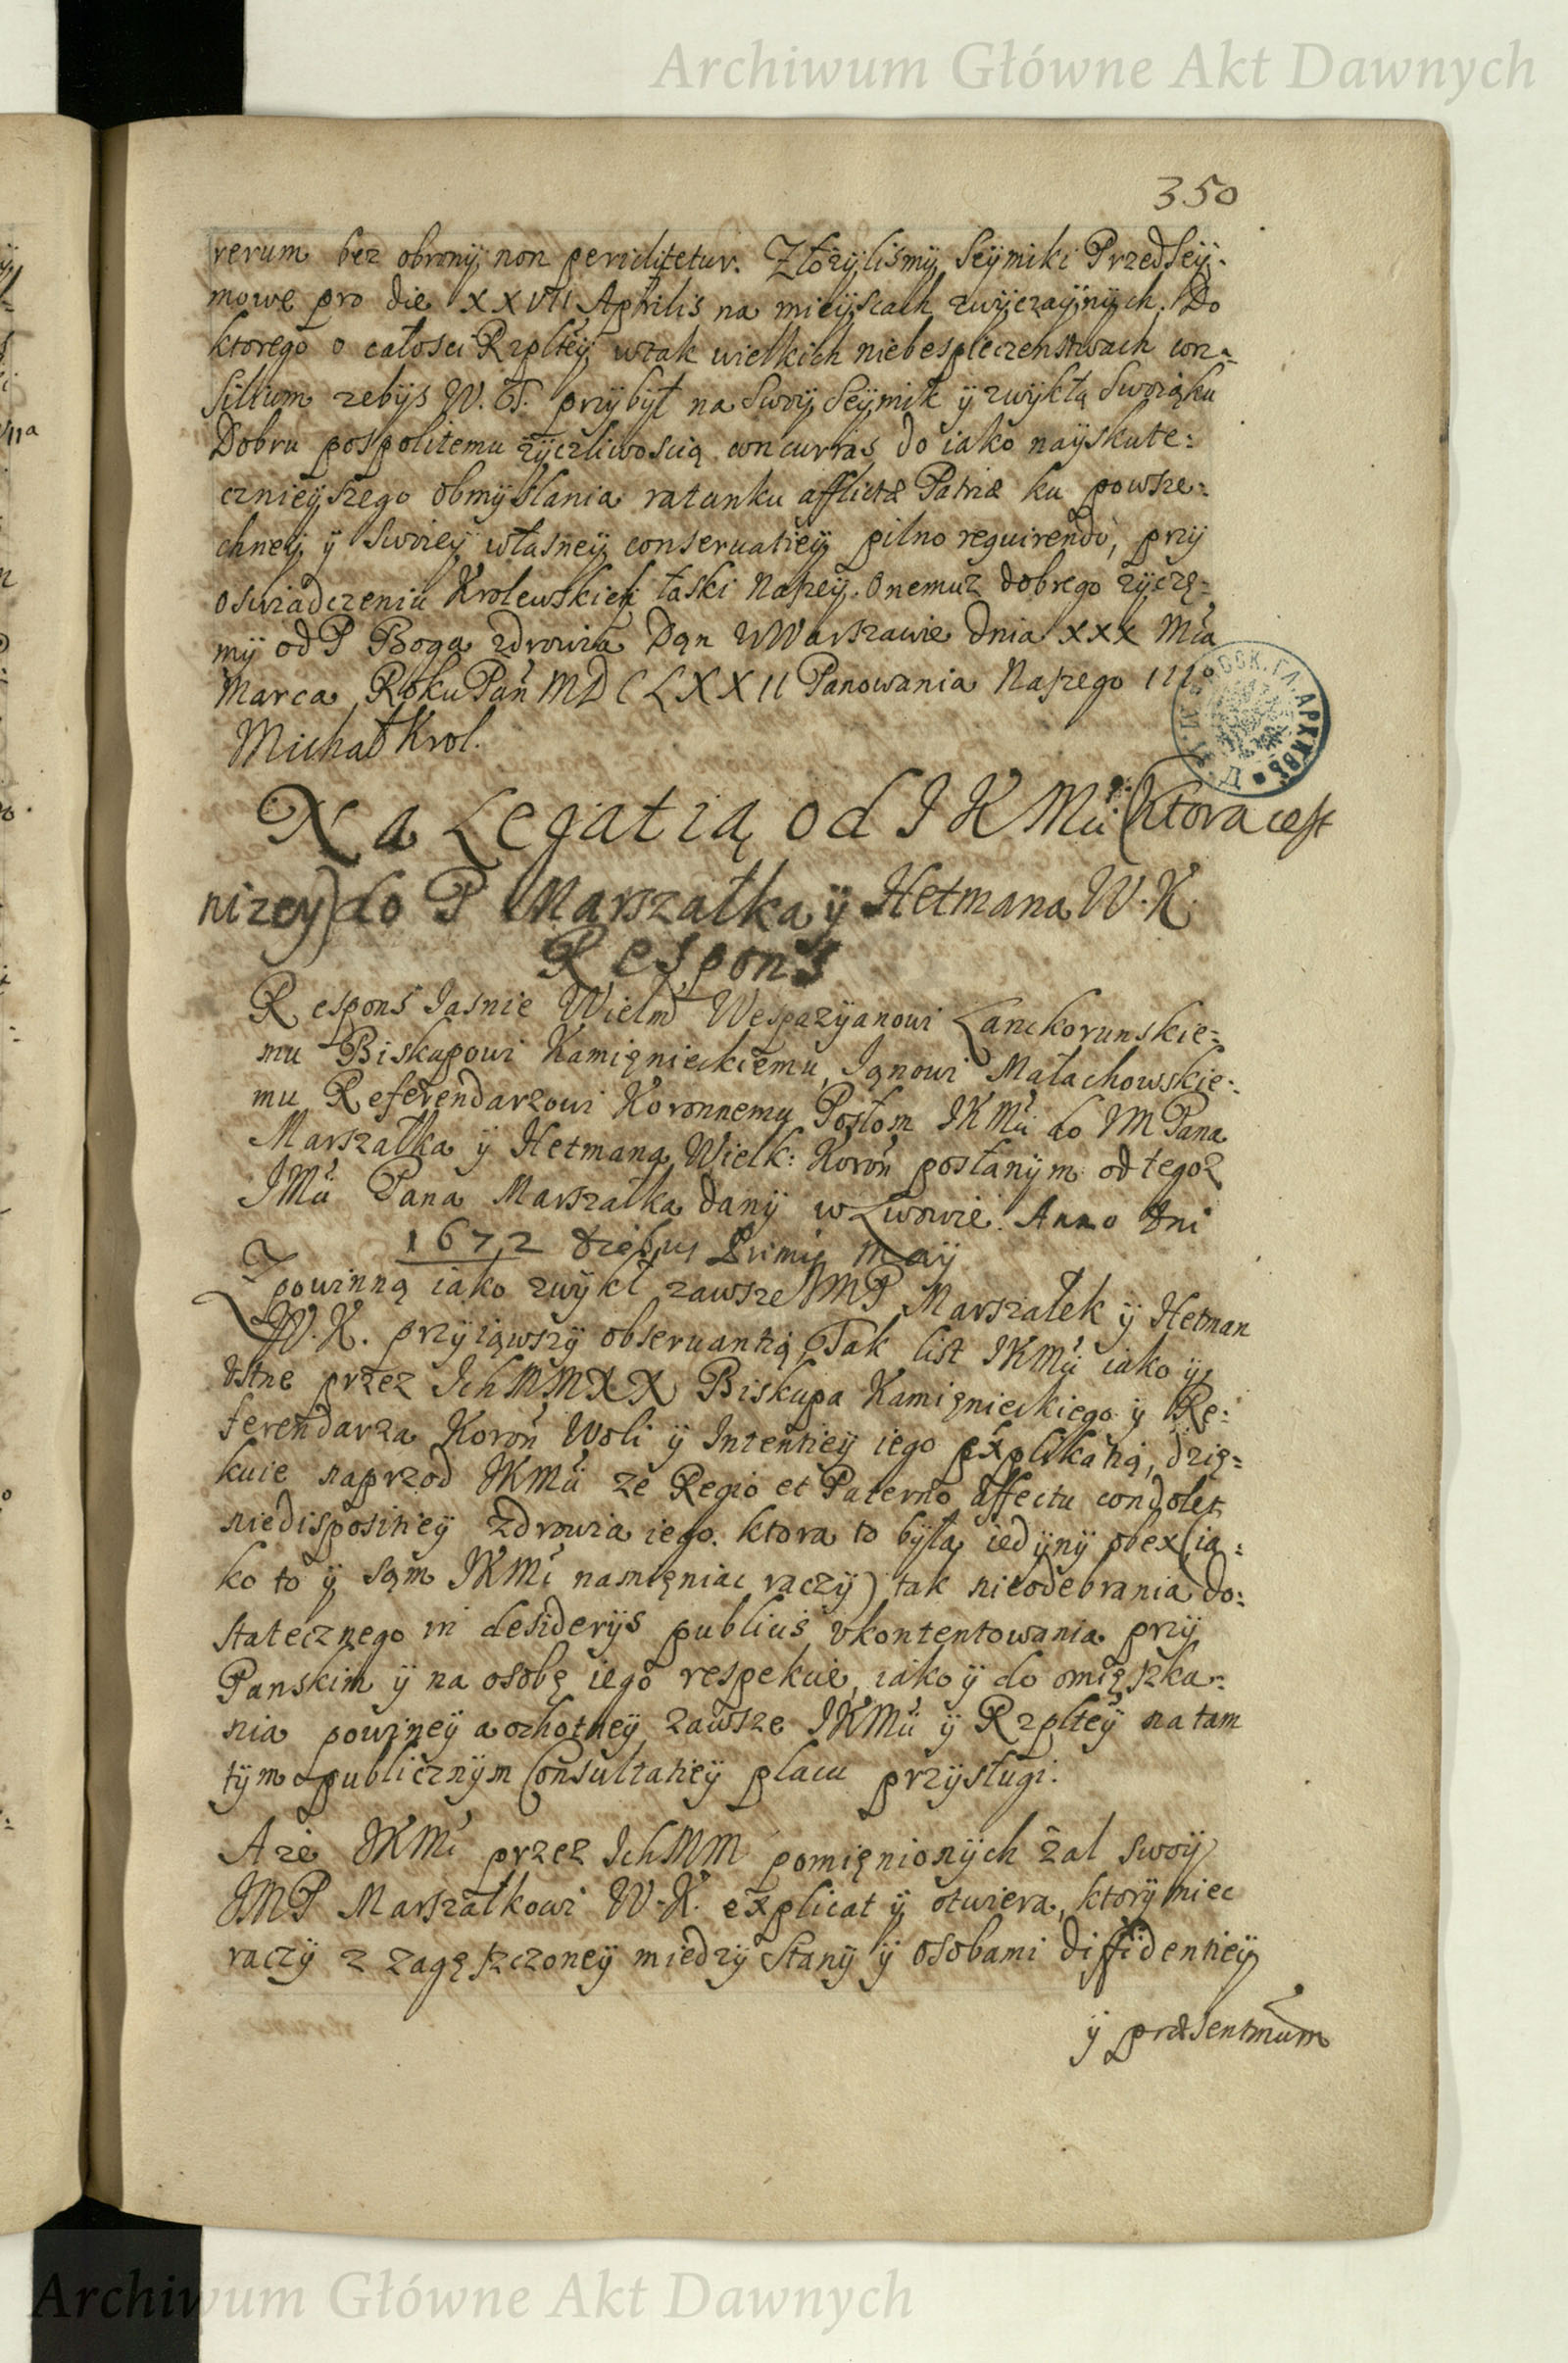 Archiwum Główne Akt Dawnych
350
rerum bez obrony non periclitetur. Złożylismy Seymiki Przedsey-
mowe pro die XXVII Aprilis na mieyscach zwyczaynych. Do
ktorego o całosci Rzpltey wtak wielkich niebespieczenstwach con-
silium zebys W. T. przybył na Swoy Seymik y zwykłą Swoiąku
Dobru pospolitemu zyczliwoscią concurras do iako nayskute:
cznieyszego obmyslania ratunku afflictæ Patriæ ku powsze:
chney y Swoiey własney conseruatiey pilno requirendo, przy
oswiadczeniu Krolewskiey łaski Naszey. Onemuz dobrego zyczę-
my od P Boga zdrowia Dan w Warszawie Dnia XXX Mca
Marca Roku Pan MDCLXXII Panowania Naszego III
Michał Krol.
Na Legatią od JKMci (Ktora iest
nizey) do P Marszałka y Hetmana W. K.
Respons
Respons Jasnie Wielm Wespazyanowi Lanckorunskie:
mu Biskupowi Kamienieckiemu, Janowi Małachowskie:
mu Referendarzowi Koronnemu Posłom JKMci do JM Pana
Marszałka y Hetmana Wielk: Koron posłanym od tegoz
JMci Pana Marszałka dany w Lwowie. Anno Dni
1672 diebus Primis May
Z powinną iako zwykł zawsze JMP Marszałek y Hetman
W. K. przyiąwszy obseruantią, Tak list JKMci iako y
Ustne przez IchMMXX Biskupa Kamienieckiego y Re:
ferendarza Koron Woli y Intentiey iego explikatią, dzię=
kuie naprzod JKMci ze Regio et Paterno affectu condolet
niedispositiey zdrowia iego. ktora to była iedyny obex (ia:
ko to y sam JKMc namieniac raczy) tak nieodebrania do:
statecznego in desiderys publicis ukontentowania przy
Panskim y na osobę iego respekcie, iako y do omięszka-
nia powinney a ochotney zawsze JKMci y Rzpltey na tam
tym publicznym Consultatiey placu przysługi.
A ze JKMc przez IchMM pomienionych zal swoy
JMP Marszałkowi W. K. explicat y otwiera, ktory miec
raczy z zagęszczoney miedzy Stany y osobami diffidentiey
y præsentium
Archiwum Główne Akt Dawnych